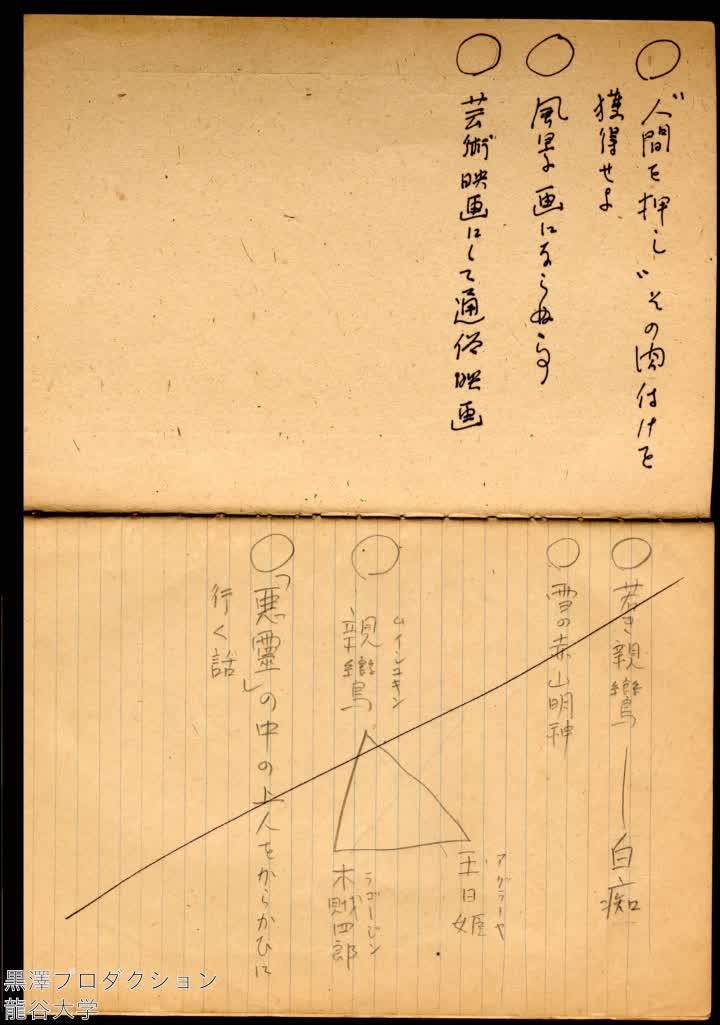 ○ "人間を押し"その肉付けを
獲得せよ
○ 風景画にならぬ事
○ 芸術映画にして通俗映画
○ 若き親鸞 ― 白痴
○ 雪の赤山明神
○ ムインシュキン
親鸞
アグラーヤ
玉日姫
ラゴージン
木賊四郎
○ 「悪霊」の中の上人をからかひに
行く話
黒澤プロダクション
龍谷大学